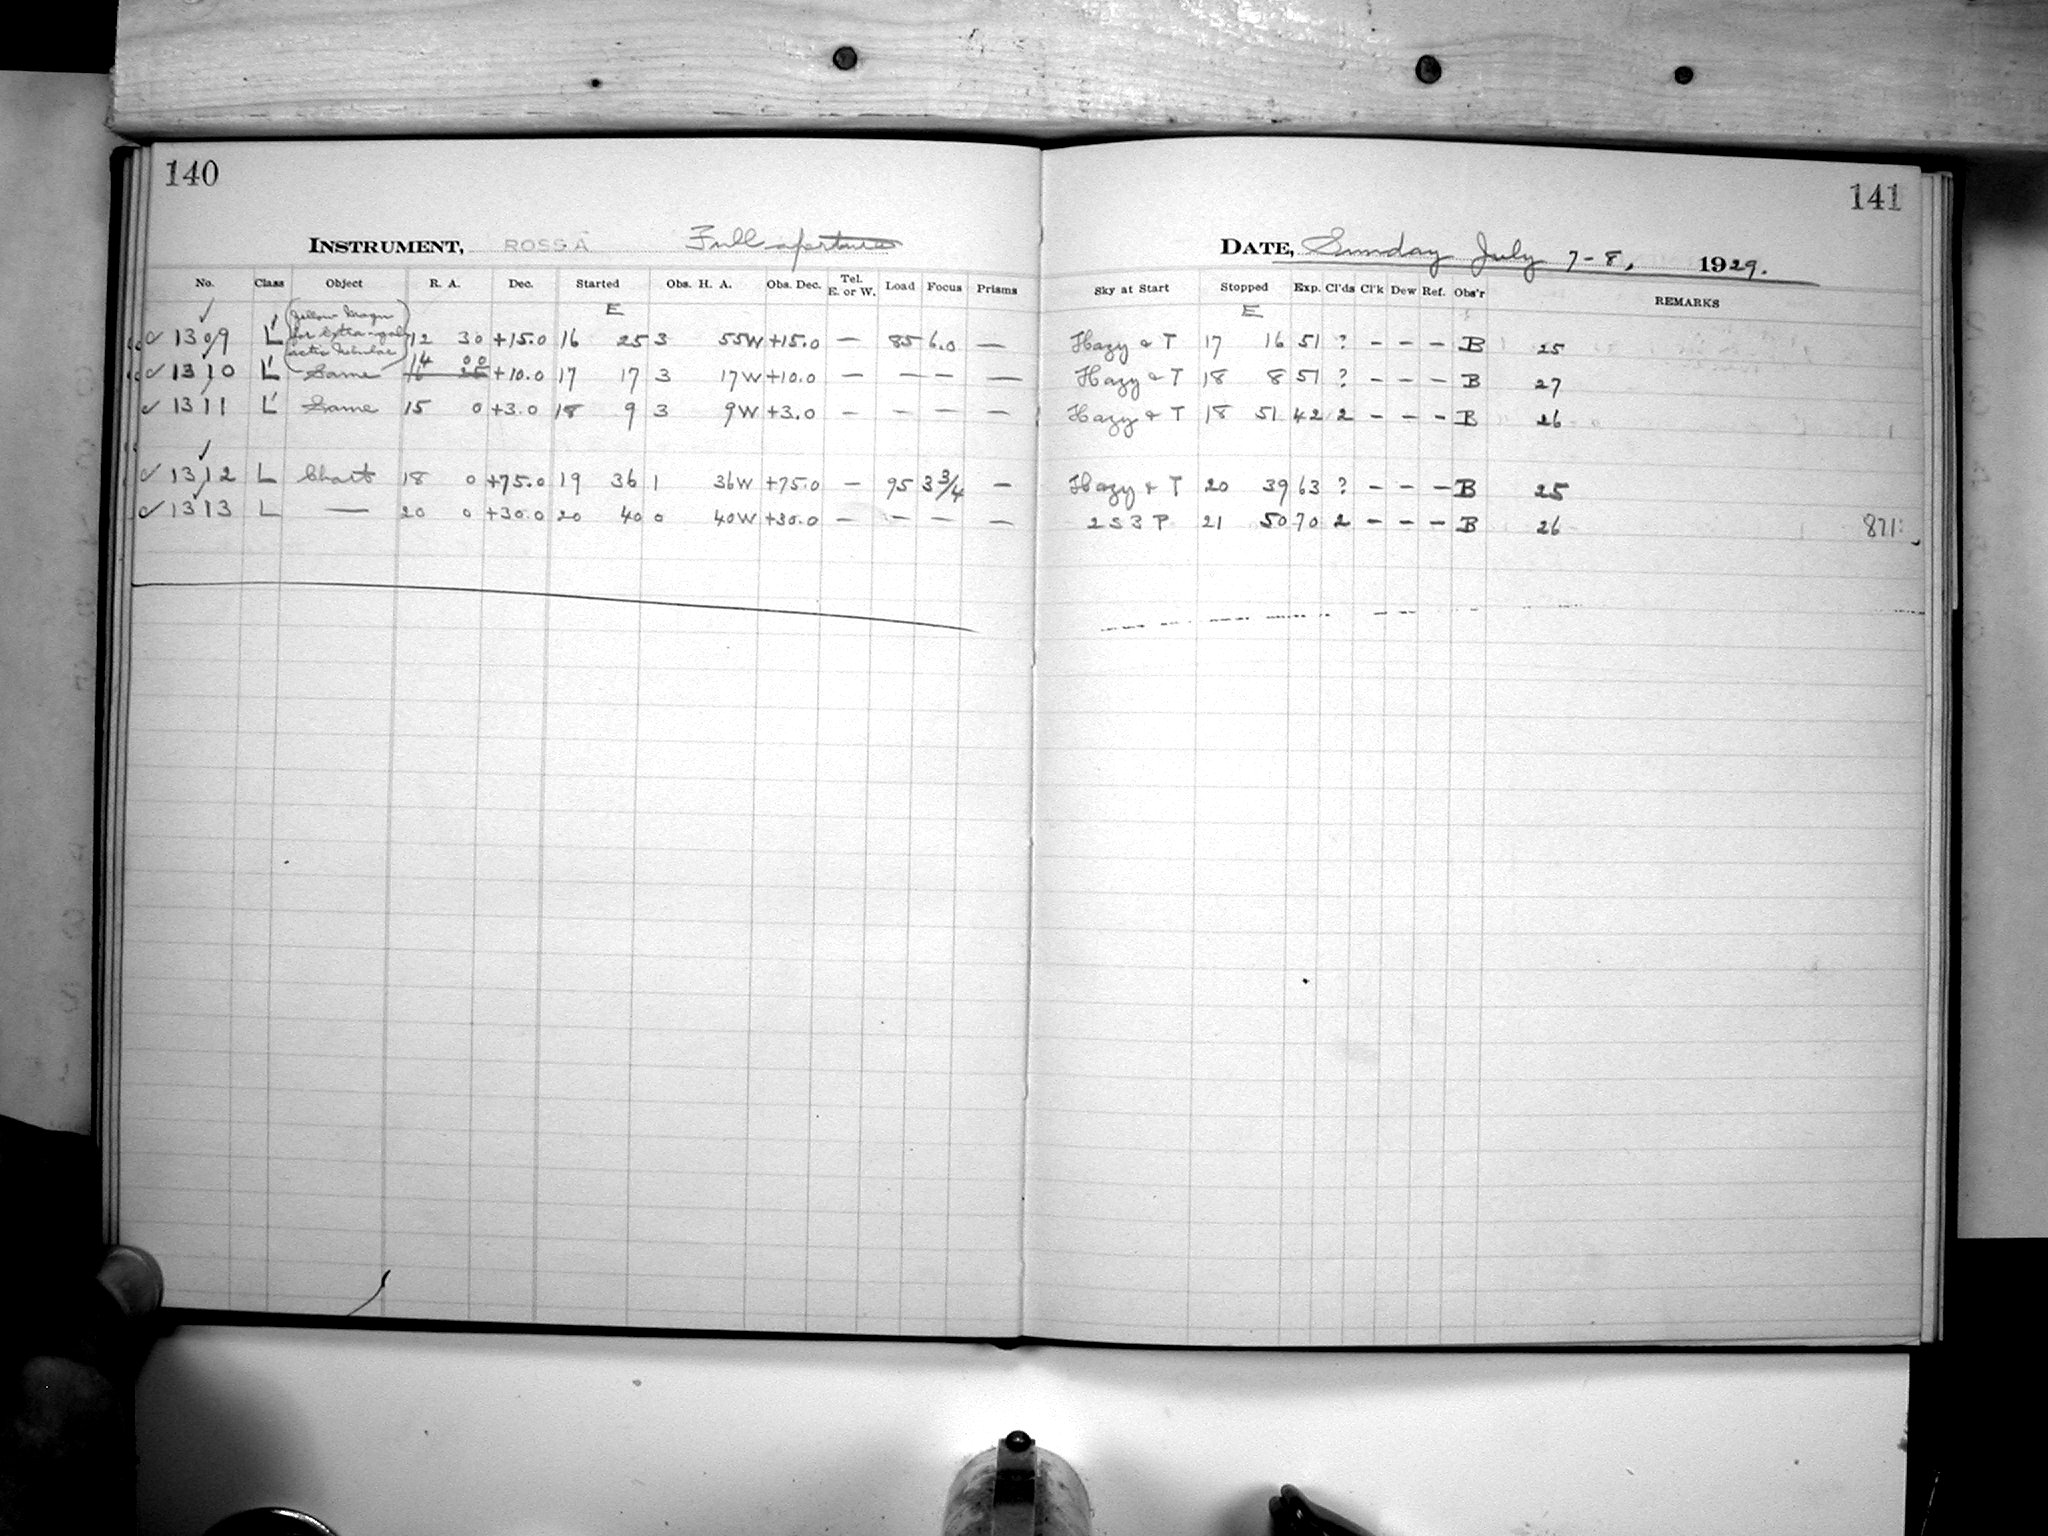 140
INSTRUMENT, ROSS A Full aperture
No. Class Object R. A. Dec. Started Obs. H. A. Obs. Dec. Tel. E. or W. Load Focus Prisms
E
1309 L (Yellow Magn for Extragalactic Nebulae) 12 30 +15.0 16 25 3 55W +15.0 — 85 6.0 —
14 00
1310 L Same +10.0 17 17 3 17W +10.0 — — — —
1311 L Same 15 0 +3.0 18 9 3 9W +3.0 — — — —
1312 L Chart 18 0 +75.0 19 36 1 36W +75.0 — 95 3 3/4 —
1313 L — 20 0 +30.0 20 40 0 40W +30.0 — — — —
141
DATE, Sunday July 7-8, 1929.
Sky at Start Stopped Exp. Cl'ds Cl'k Dew Ref. Obs'r REMARKS
E
Hazy & T 17 16 51 ? - - - B 25
Hazy & T 18 8 51 ? - - - B 27
Hazy & T 18 51 42 2 - - - B 26
Hazy & T 20 39 63 ? - - - B 25
2 S 3 P 21 50 70 2 - - - B 26 871